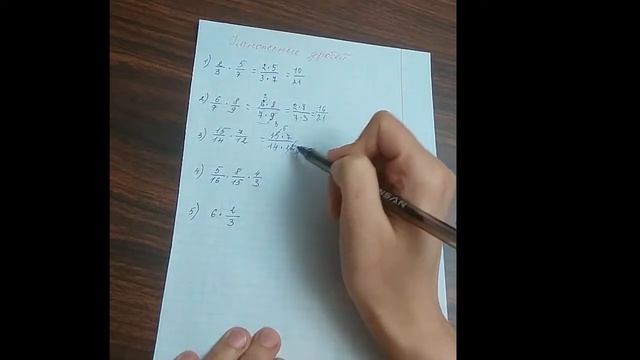 Умножение дробей
1) 2/3 · 5/7 = 2·5/3·7 = 10/21
2) 6/7 · 8/9 = 2 6·8/7·9 3 = 2·8/7·3 = 16/21
3) 15/14 · 7/12 = 5 15·7/14·12
4) 5/16 · 8/15 · 4/3
5) 6 · 2/3